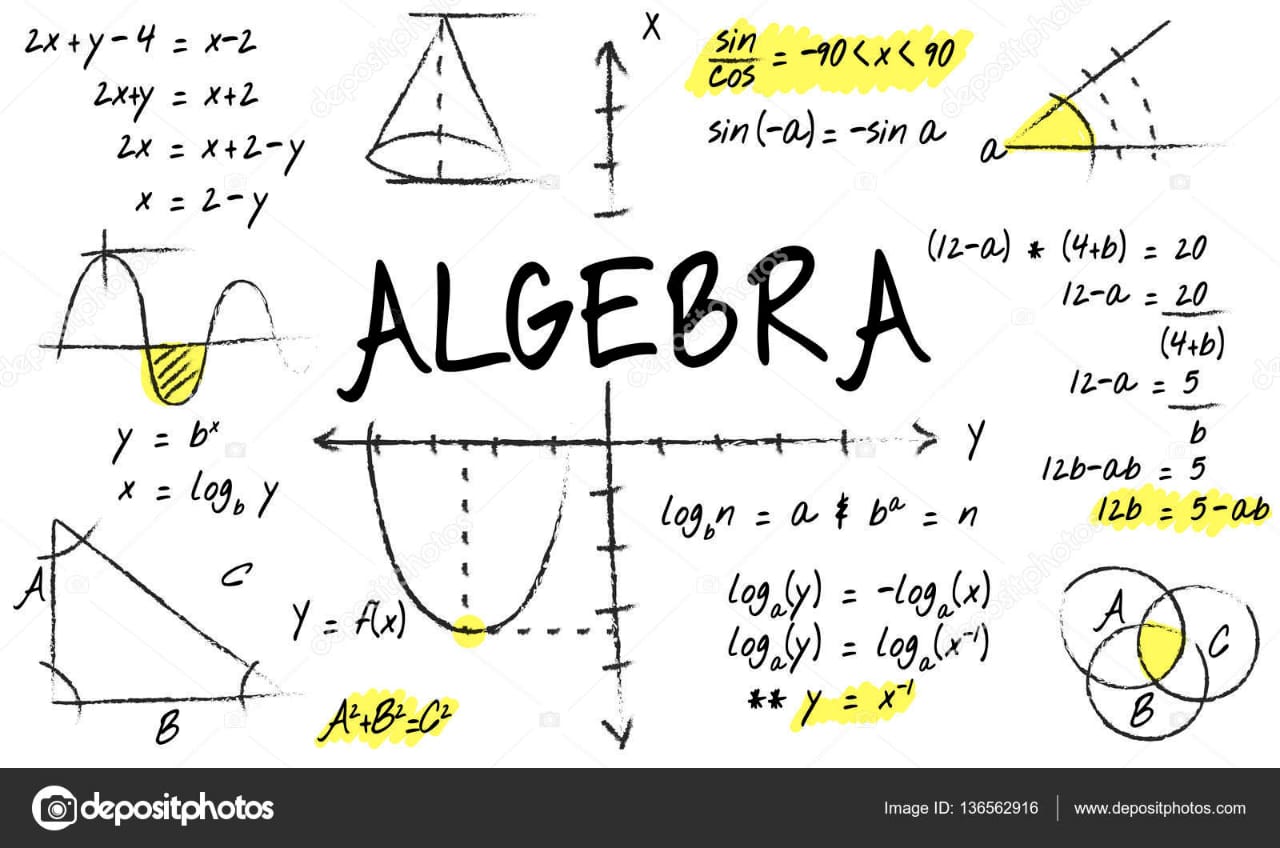 2x+y-4 = x-2
2x+y = x+2
2x = x+2-y
x = 2-y
X
sin
cos
= -90<x<90
sin(-a) = -sin a
a
ALGEBRA
(12-a) * (4+b) = 20
12-a = 20
(4+b)
12-a = 5
b
12b-ab = 5
12b = 5-ab
y = bˣ
x = log_b y
Y
A
C
B
Y = f(x)
A²+B²=C²
log_b n = a & bᵃ = n
logₐ(y) = -logₐ(x)
logₐ(y) = logₐ(x⁻¹)
** y = x⁻¹
A
C
B
depositphotos
Image ID: 136562916
www.depositphotos.com